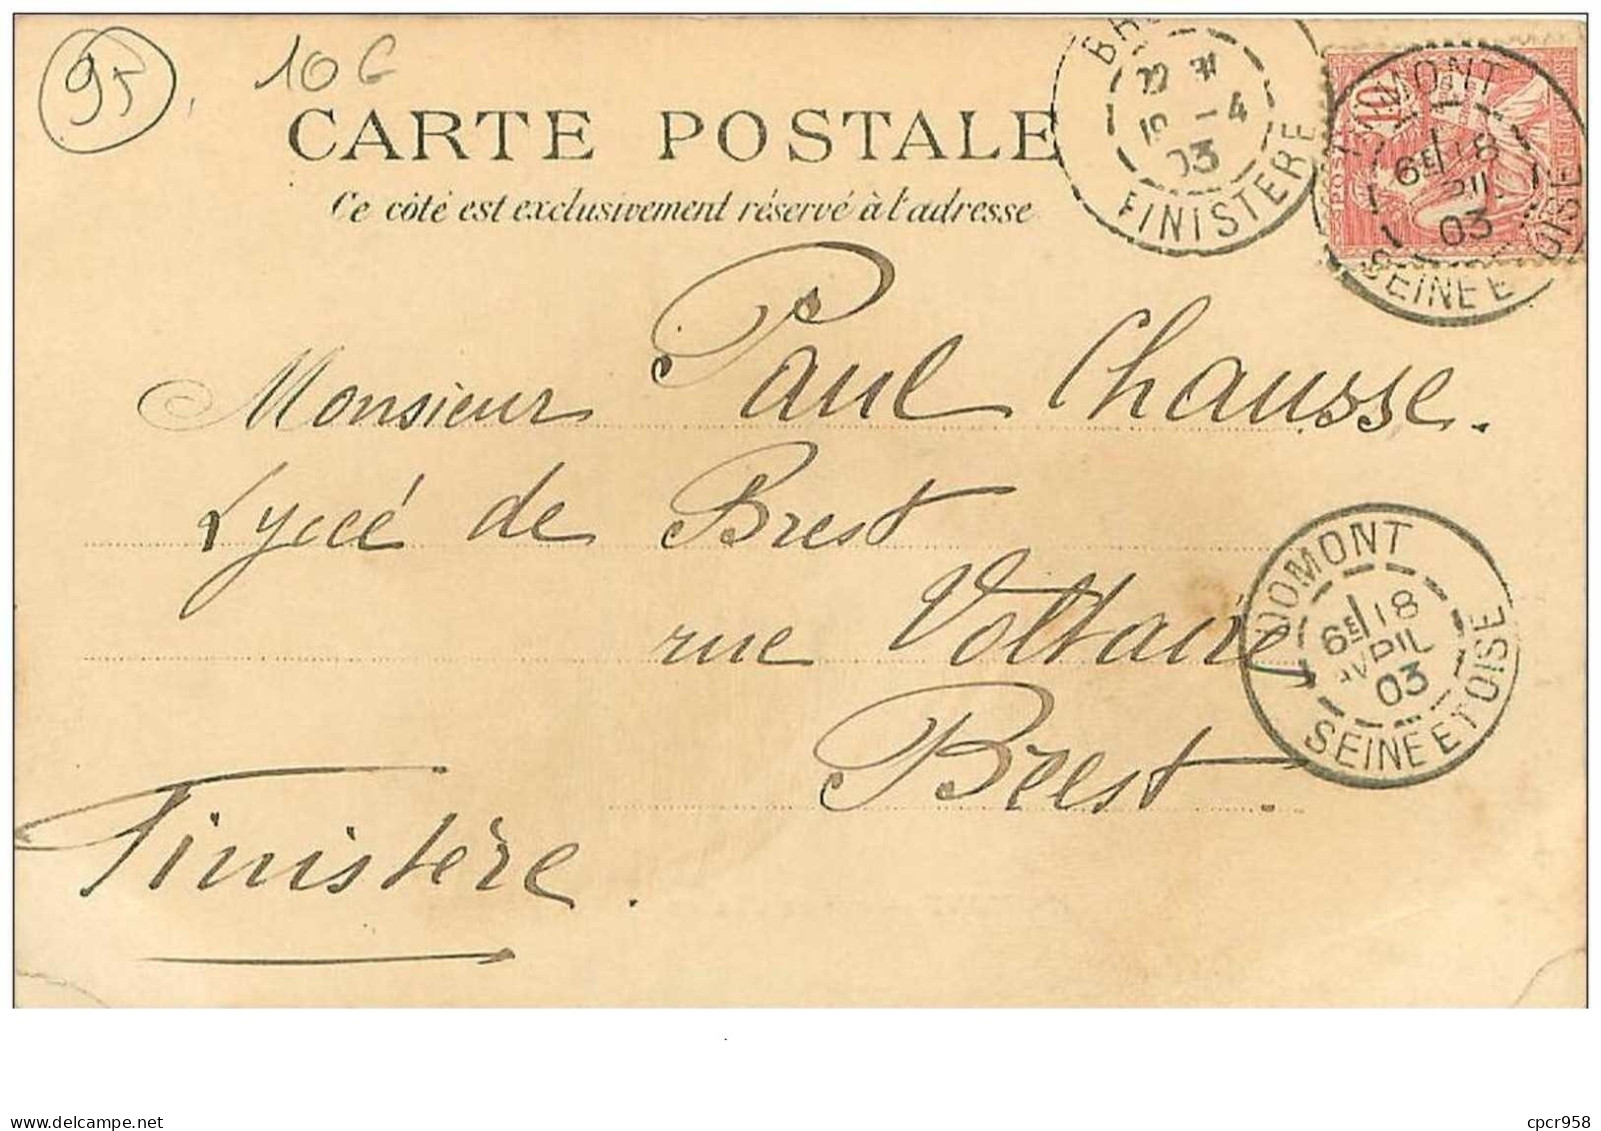 95
10 G
CARTE POSTALE
Ce côté est exclusivement réservé à l'adresse
FINISTERE
19 - 4
03
10
POSTES
DOMONT
6E 18
03
SEINE ET OISE
Monsieur Paul Chausse.
Lycée de Brest
rue Voltaire
Brest.
Finistère.
DOMONT
6E 18
AVRIL
03
SEINE ET OISE
delcampe.net
cpcr958